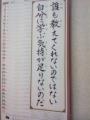 誰も教えてくれないのではない
自分に学ぶ気持が足りないのだ